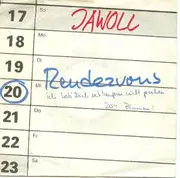 17 So JAWOLL
18 Mo
19 Di
20 Mi Rendezvous
ich hab' Dich seit langem nicht gesehen
21 Do
22 Fr
23 Sa